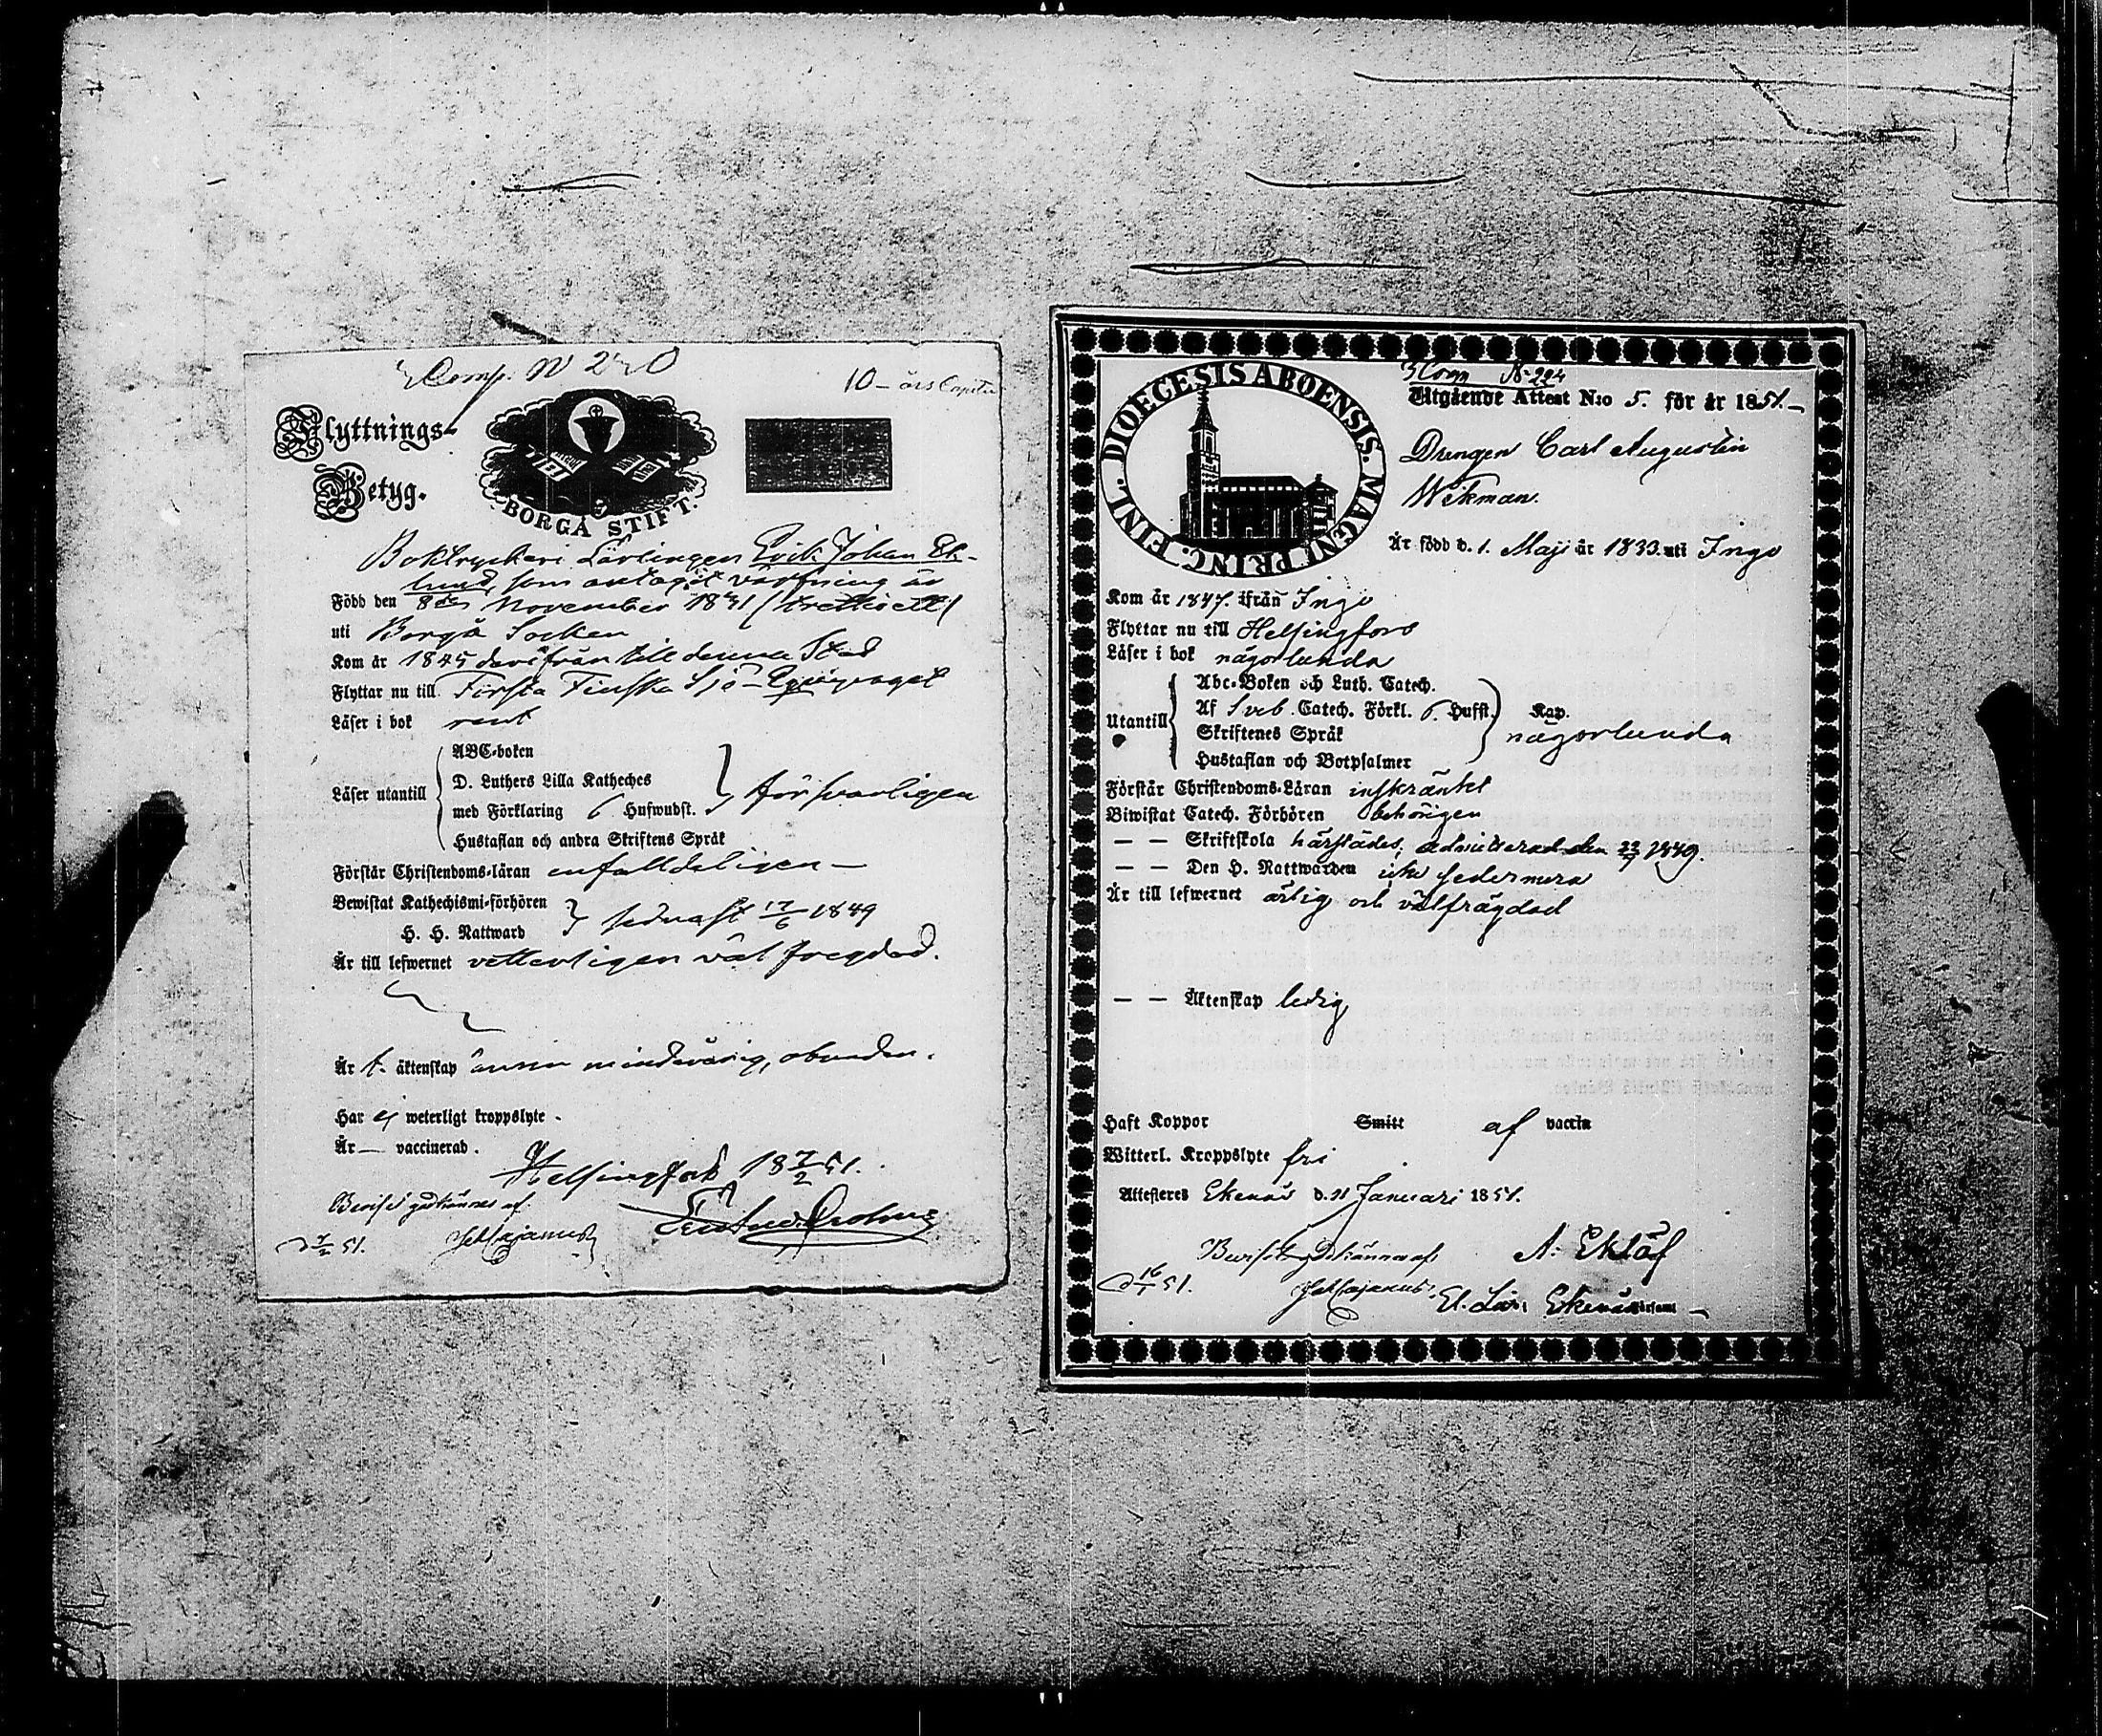 Comp. N 240
10 - års Capitu
Flyttnings-
Betyg.
BORGÅ STIFT.
Boktryckeri Lärlingen Erik Johan Ek-
lund, som antagit värfning är
Född den 8de November 1831 (trettioett)
uti Borgå Socken
Kom år 1845 derifrån till denna Stad
Flyttar nu till Första Finska Sjö-Equipaget
Läser i bok rent
Läser utantill
ABC-boken
D. Luthers Lilla Kateches
med Förklaring 6 Hufwudst.
Hustaflan och andra Skriftens Språk
försvarligen
Förstår Christendoms-läran enfalldeligen —
Bewistat Kathechismi-förhören
H. H. Nattward
sednast 17/6 1849
Är till lefwernet vetterligen väl fregdad.
Är t. äktenskap ännu minderårig, obunden.
Har ej weterligt kroppslyte.
Är — vaccinerad.
Helsingfors 18 7/2 51.
Beviset godkännes af
d 7/2 51.
3 Comp N 224
DIOECESIS ABOENSIS. MAGNI PRINC. FINL.
Utgående Attest N:o 5. för år 1851.—
Drengen Carl Augustin
Wikman.
Är född d. 1. Maji år 1833. uti Ingo
Kom år 1847. ifrån Ingo
Flyttar nu till Helsingfors
Läser i bok någorlunda
Utantill
Abc-Boken och Luth. Catech.
Af Sveb. Catech. Förkl. 6. Hufst. Kap.
Skriftenes Språk
Hustaflan och Botpsalmer
någorlunda
Förstår Christendoms-Läran inskränkt
Biwistat Catech. Förhören behörigen
— — Skriftskola härstädes, admitterad den 22/7 1849.
— — Den H. Nattwarden icke sedermera
Är till lefwernet ärlig och välfrägdad
— — Äktenskap ledig
Haft Koppor Smitt af vaccin
Witterl. Kroppslyte fri
Attesteres Ekenäs d. 11 Januari 1851.
Beviset godkännes af
A: Eklöf
d 16/1 51.